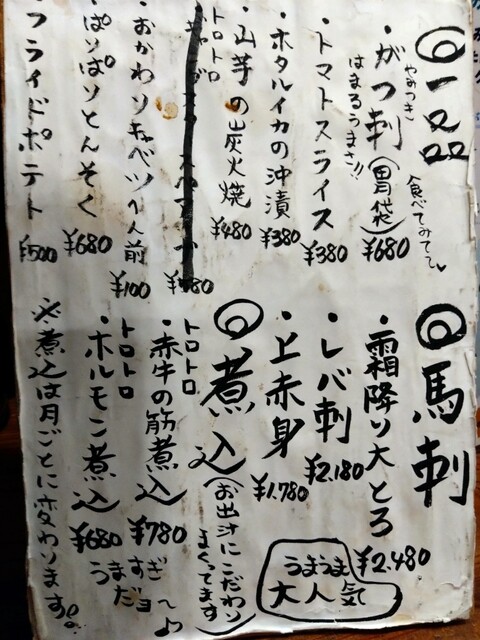 ◎一品
食べてみてて♥
やみつき
・がつ刺(胃袋) ¥680
はまるうまさ!!
・トマトスライス ¥380
・ホタルイカの沖漬 ¥380
・山芋の炭火焼 ¥480
トロトロ
¥480
・おかわりキャベツ1人前 ¥100
・ぱりぱりとんそく ¥680
フライドポテト ¥500
◎馬刺
・霜降り大とろ ¥2.480
・レバ刺 ¥2.180
・上赤身 ¥1.780
うまうま
大人気
◎煮込
(お出汁にこだわり
まくってます)
トロトロ
・赤牛の筋煮込 ¥780
トロトロ
・ホルモン煮込 ¥680
うますぎ
だョ〜♪
※煮込は月ごとに変わります。